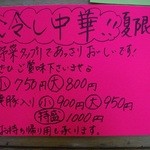 冷し中華!!夏限
野菜タップリであっさりおいしいです!
ぜひご賞味下さいませ
小750円大800円
豚勝入り小900円大950円
特盛1000円
お持ち帰り用も承ります。